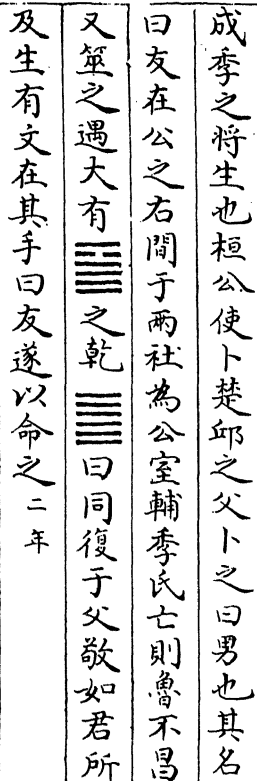 成季之将生也桓公使卜楚邱之父卜之曰男也其名
曰友在公之右間于兩社為公室輔季氏亡則魯不昌
又筮之遇大有䷍之乾䷀曰同復于父敬如君所
及生有文在其手曰友遂以命之二年